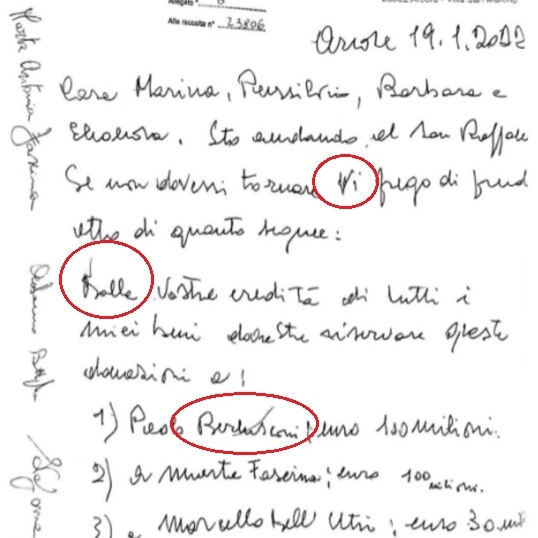 Allegato " B
Alla raccolta n° 23806
Arcore 19.1.2022
Cara Marina, Piersilvio, Barbara e
Eleonora, Sto andando al San Raffaele
Se non dovessi tornare Vi prego di prend
atto di quanto segue:
Dalle Vostre eredità di tutti i
miei beni dovreste riservare queste
donazioni a:
1) Paolo Berlusconi, euro 100 milioni.
2) a Marta Fascina; euro 100 milioni.
3) a Marcello Dell'Utri; euro 30 mil
Marta Antonia Fascina